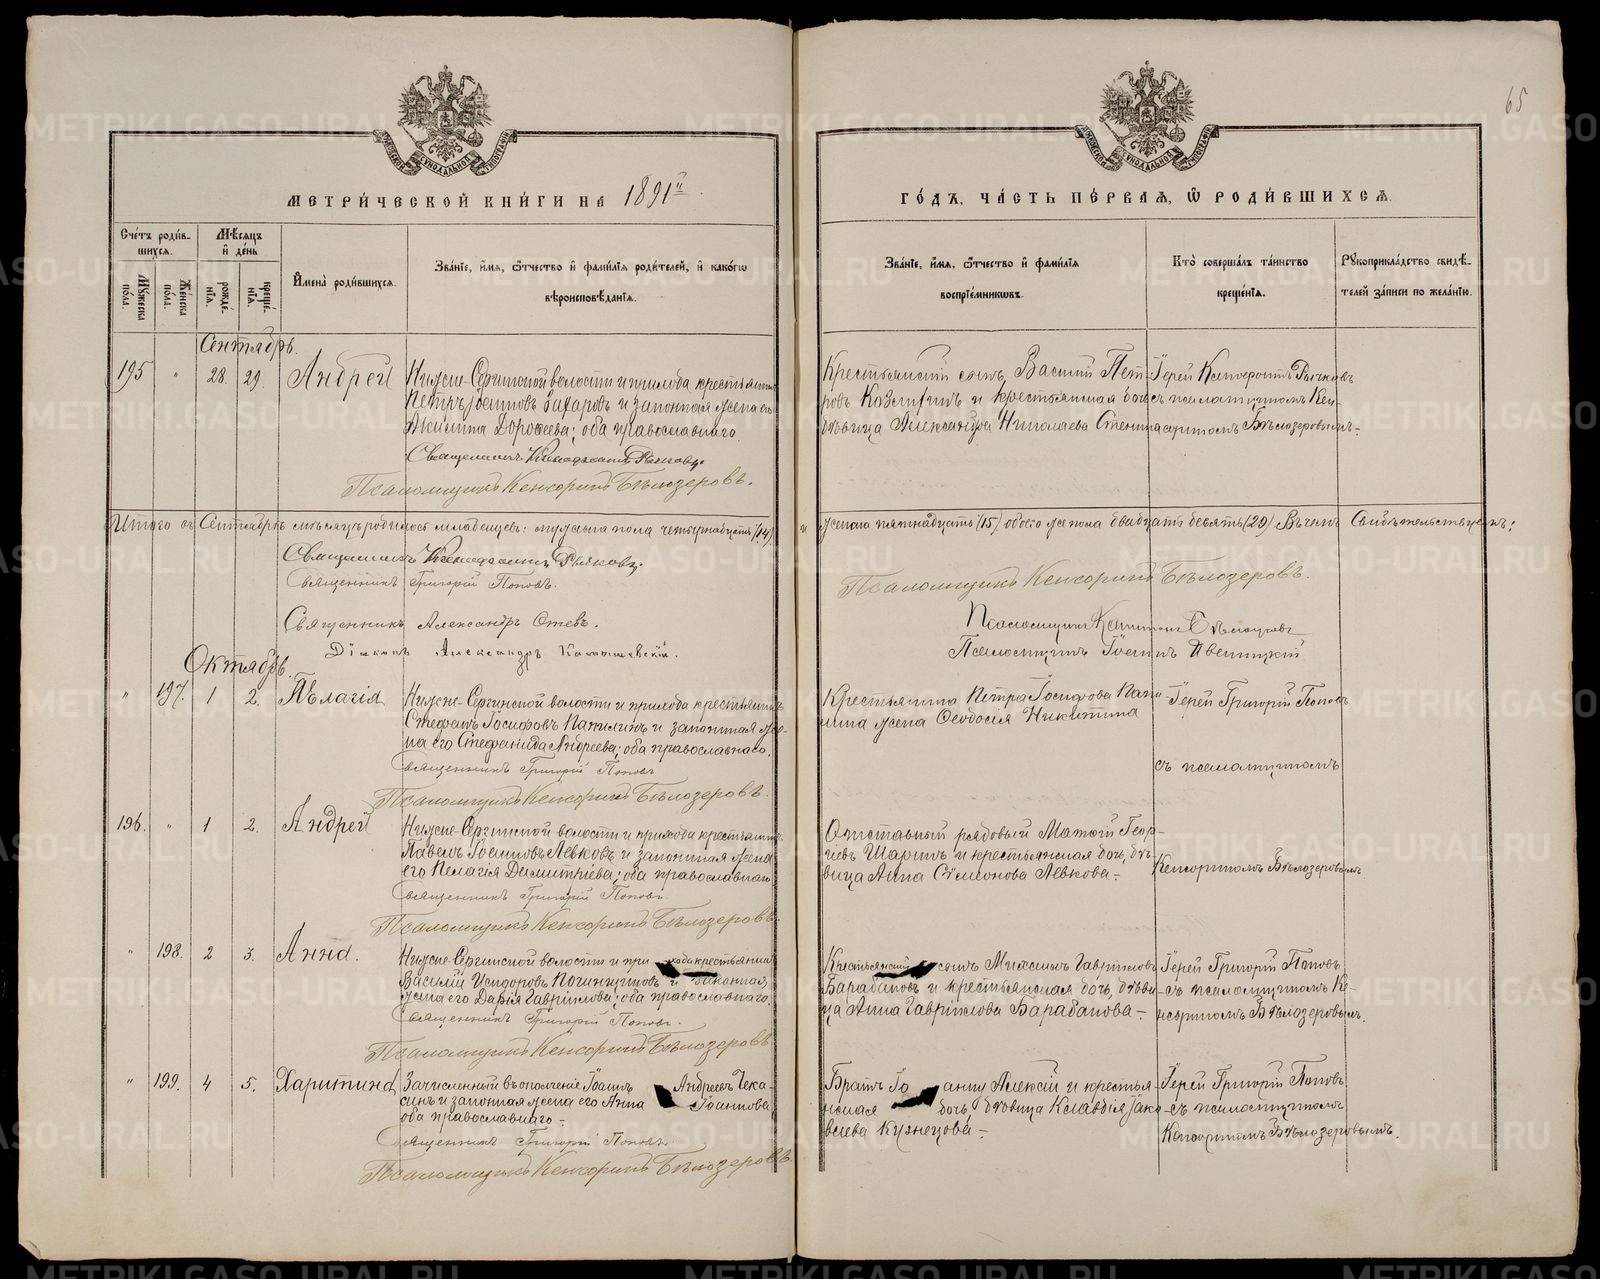 65
МЕТРИ́ЧЕСКОЙ КНИ́ГИ НА 1891й.
ГО́ДЪ, ЧА́СТЬ ПЕ́РВАЯ, Ѿ РОДИ́ВШИХСЯ.
Сче́тъ роди́в-
шихся.
Му́жеска по́ла.
Же́нска по́ла.
Мѣ́сяцъ
и҆ де́нь
рожде́-
нїя.
креще́-
нїя.
И҆мена̀ роди́вшихся.
Зва́нїе, и҆́мя, ѻ҆́тчество и҆ фами́лїя роди́телей, и҆ како́гѡ
вѣроисповѣ́данїя.
Зва́нїе, и҆́мя, ѻ҆́тчество и҆ фами́лїя
воспрїе́мникѡвъ.
Кто̀ соверша́лъ та́инство
креще́нїя.
Рꙋкоприкла́дство свидѣ́-
телей за́писи по жела́нїю.
Сентябрь.
195 " 28. 29. Андрей
Нижне-Сергинской волости и прихода крестьянинъ
Петръ Захаровъ и законная жена его
Акилина Дорофеева; оба православнаго.
Священникъ
Псаломщикъ Кенсоринъ Бѣлозеровъ.
Крестьянскій сынъ, Василій Пет-
ровъ и крестьянская дочь
дѣвица Александра Николаева
Іерей
съ псаломщикомъ Кен-
сориномъ Бѣлозеровымъ.
Итого въ Сентябрѣ мѣсяцѣ родилось младенцевъ: мужеска пола четырнадцать (14)
женска пятнадцать (15) обоего же пола двадцать девять (29) Въ чемъ Свидѣтельствуемъ:
Священникъ
Священникъ Григорій Поповъ.
Священникъ Александръ
Діаконъ Александръ
Псаломщикъ Кенсоринъ Бѣлозеровъ.
Псаломщикъ
Псаломщикъ
Октябрь.
" 197. 1 2. Пѣлагія
Нижне-Сергинской волости и прихода крестьянинъ
Стефанъ Іосифовъ и законная же-
на его Стефанида Андреева; оба православнаго.
Священникъ Григорій Поповъ
Псаломщикъ Кенсоринъ Бѣлозеровъ.
Крестьянина Петра Іосифова
жена Ѳеодосія Никитина
Іерей Григорій Поповъ
съ псаломщикомъ
196. " 1 2. Андрей
Нижне-Сергинской волости и прихода крестьянинъ
Павелъ Левковъ и законная жена
его Пелагія Димитріева; оба православнаго.
Священникъ Григорій Поповъ.
Псаломщикъ Кенсоринъ Бѣлозеровъ.
Отставный рядовый Геор-
гіевъ и крестьянская дочь, дѣ-
вица Анна Сѵмеонова Левкова.-
Кенсориномъ Бѣлозеровымъ
" 198. 2 3. Анна.
Нижне-Сергинской волости и прихода крестьянинъ
Василій Исидоровъ и законная
жена его Дарія Гавріилова; оба православнаго.
Священникъ Григорій Поповъ.
Псаломщикъ Кенсоринъ Бѣлозеровъ
Крестьянскій сынъ Михаилъ Гавріиловъ
Барабановъ и крестьянская дочь, дѣви-
ца Анна Гавріилова Барабанова.-
Іерей Григорій Поповъ
съ псаломщикомъ Ке-
нсориномъ Бѣлозеровымъ.
" 199. 4 5. Харитина
Зачисленный въ ополченіе Іоаннъ Андреевъ Чека-
синъ и законная жена его Анна Іоаннова
оба православнаго.-
Священникъ Григорій Поповъ.
Псаломщикъ Кенсоринъ Бѣлозеровъ.
Братъ Іоанна Алексій и крестья-
нская дочь, дѣвица Клавдія Іако-
влева Кузнецова.-
Іерей Григорій Поповъ
съ псаломщикомъ
Кенсориномъ Бѣлозеровымъ.
METRIKI.GASO-URAL.RU